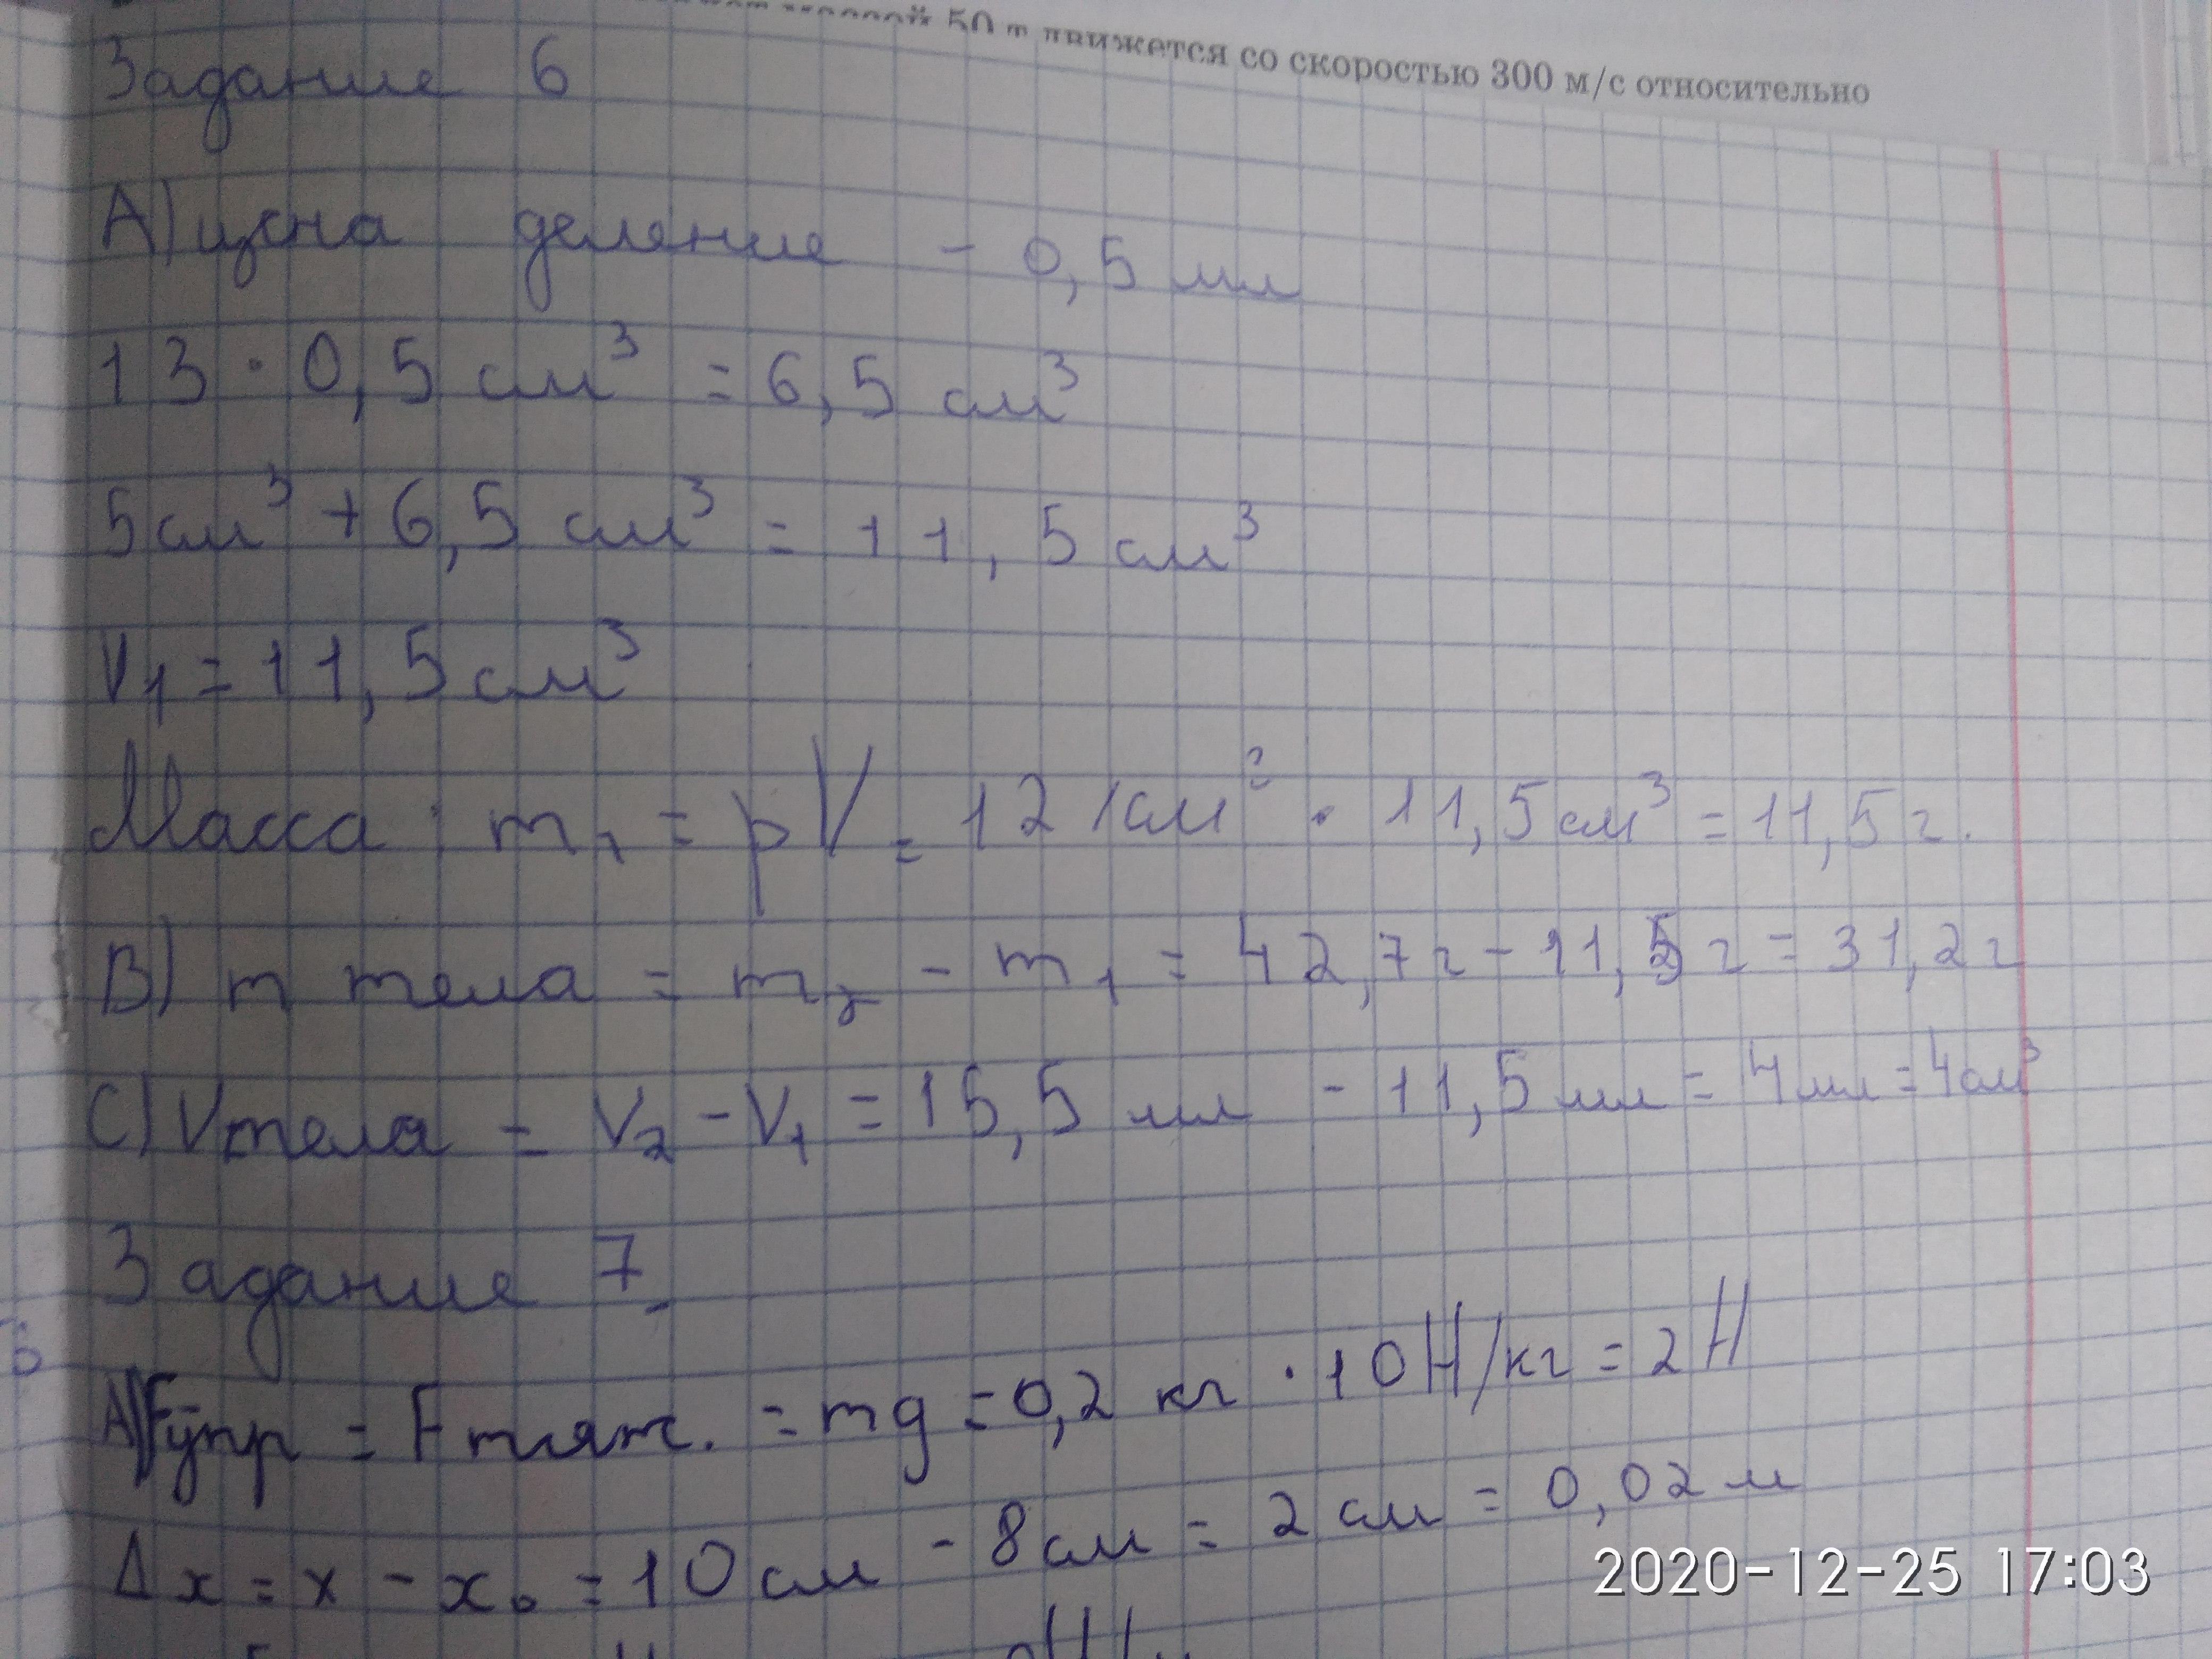 50 т движется со скоростью 300 м/с относительно
Задание 6
А) цена деление - 0,5 мл
13 · 0,5 см³ = 6,5 см³
5 см³ + 6,5 см³ = 11,5 см³
V₁ = 11,5 см³
Масса: m₁ = pV = 1г/см³ · 11,5 см³ = 11,5 г.
В) m тела = m₂ - m₁ = 42,7г - 11,5 г = 31,2г
С) Vтела = V₂ - V₁ = 15,5 мл - 11,5 мл = 4 мл = 4 см³
Задание 7.
А) Fупр = Fтяж. = mg = 0,2 кг · 10 Н/кг = 2 Н
Δx = x - x₀ = 10 см - 8 см = 2 см = 0,02 м
2020-12-25 17:03